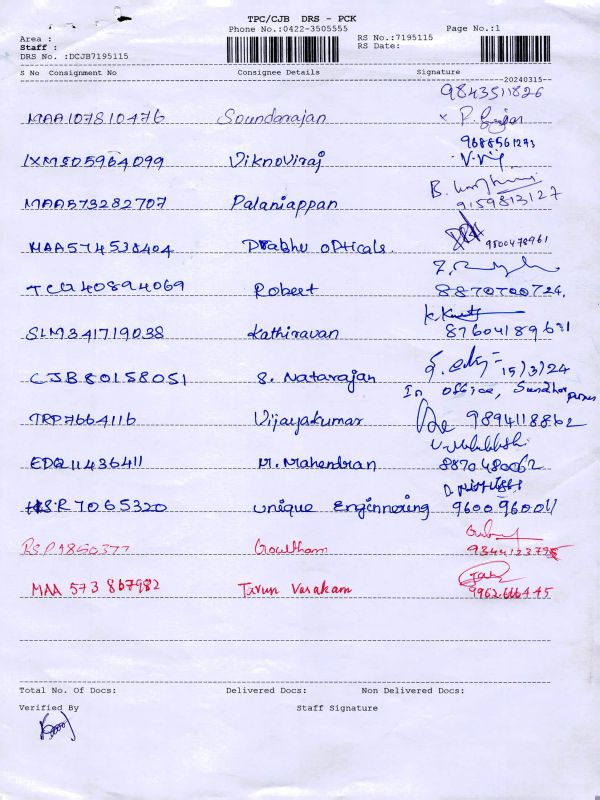 TPC/CJB DRS - PCK
Phone No.:0422-3505555 Page No.:1
Area : RS No.:7195115
Staff : RS Date:
DRS No. :DCJB7195115
S No Consignment No Consignee Details Signature
20240315
9843511826
MAA107810476 Soundarajan
9688561273
IXM505964099 Viknoviraj V.Vij
MAA573282707 Palaniappan 9159813127
MAA574538404 Prabhu opticals. 9500478961
TCQ40894069 Robert 8870700724.
SLM341719038 Kathiravan
CJB80158051 S. Natarajan 15/3/24
In office,
TRP7664116 Vijayakumar 9894118862
EDQ11436411 M. Mahendran 8870480062
HSR7065320 unique Enginnering
RSP1850377 Goutham
MAA 573 867982 Tarun Vasakam 9962666445
Total No. Of Docs: Delivered Docs: Non Delivered Docs:
Verified By Staff Signature